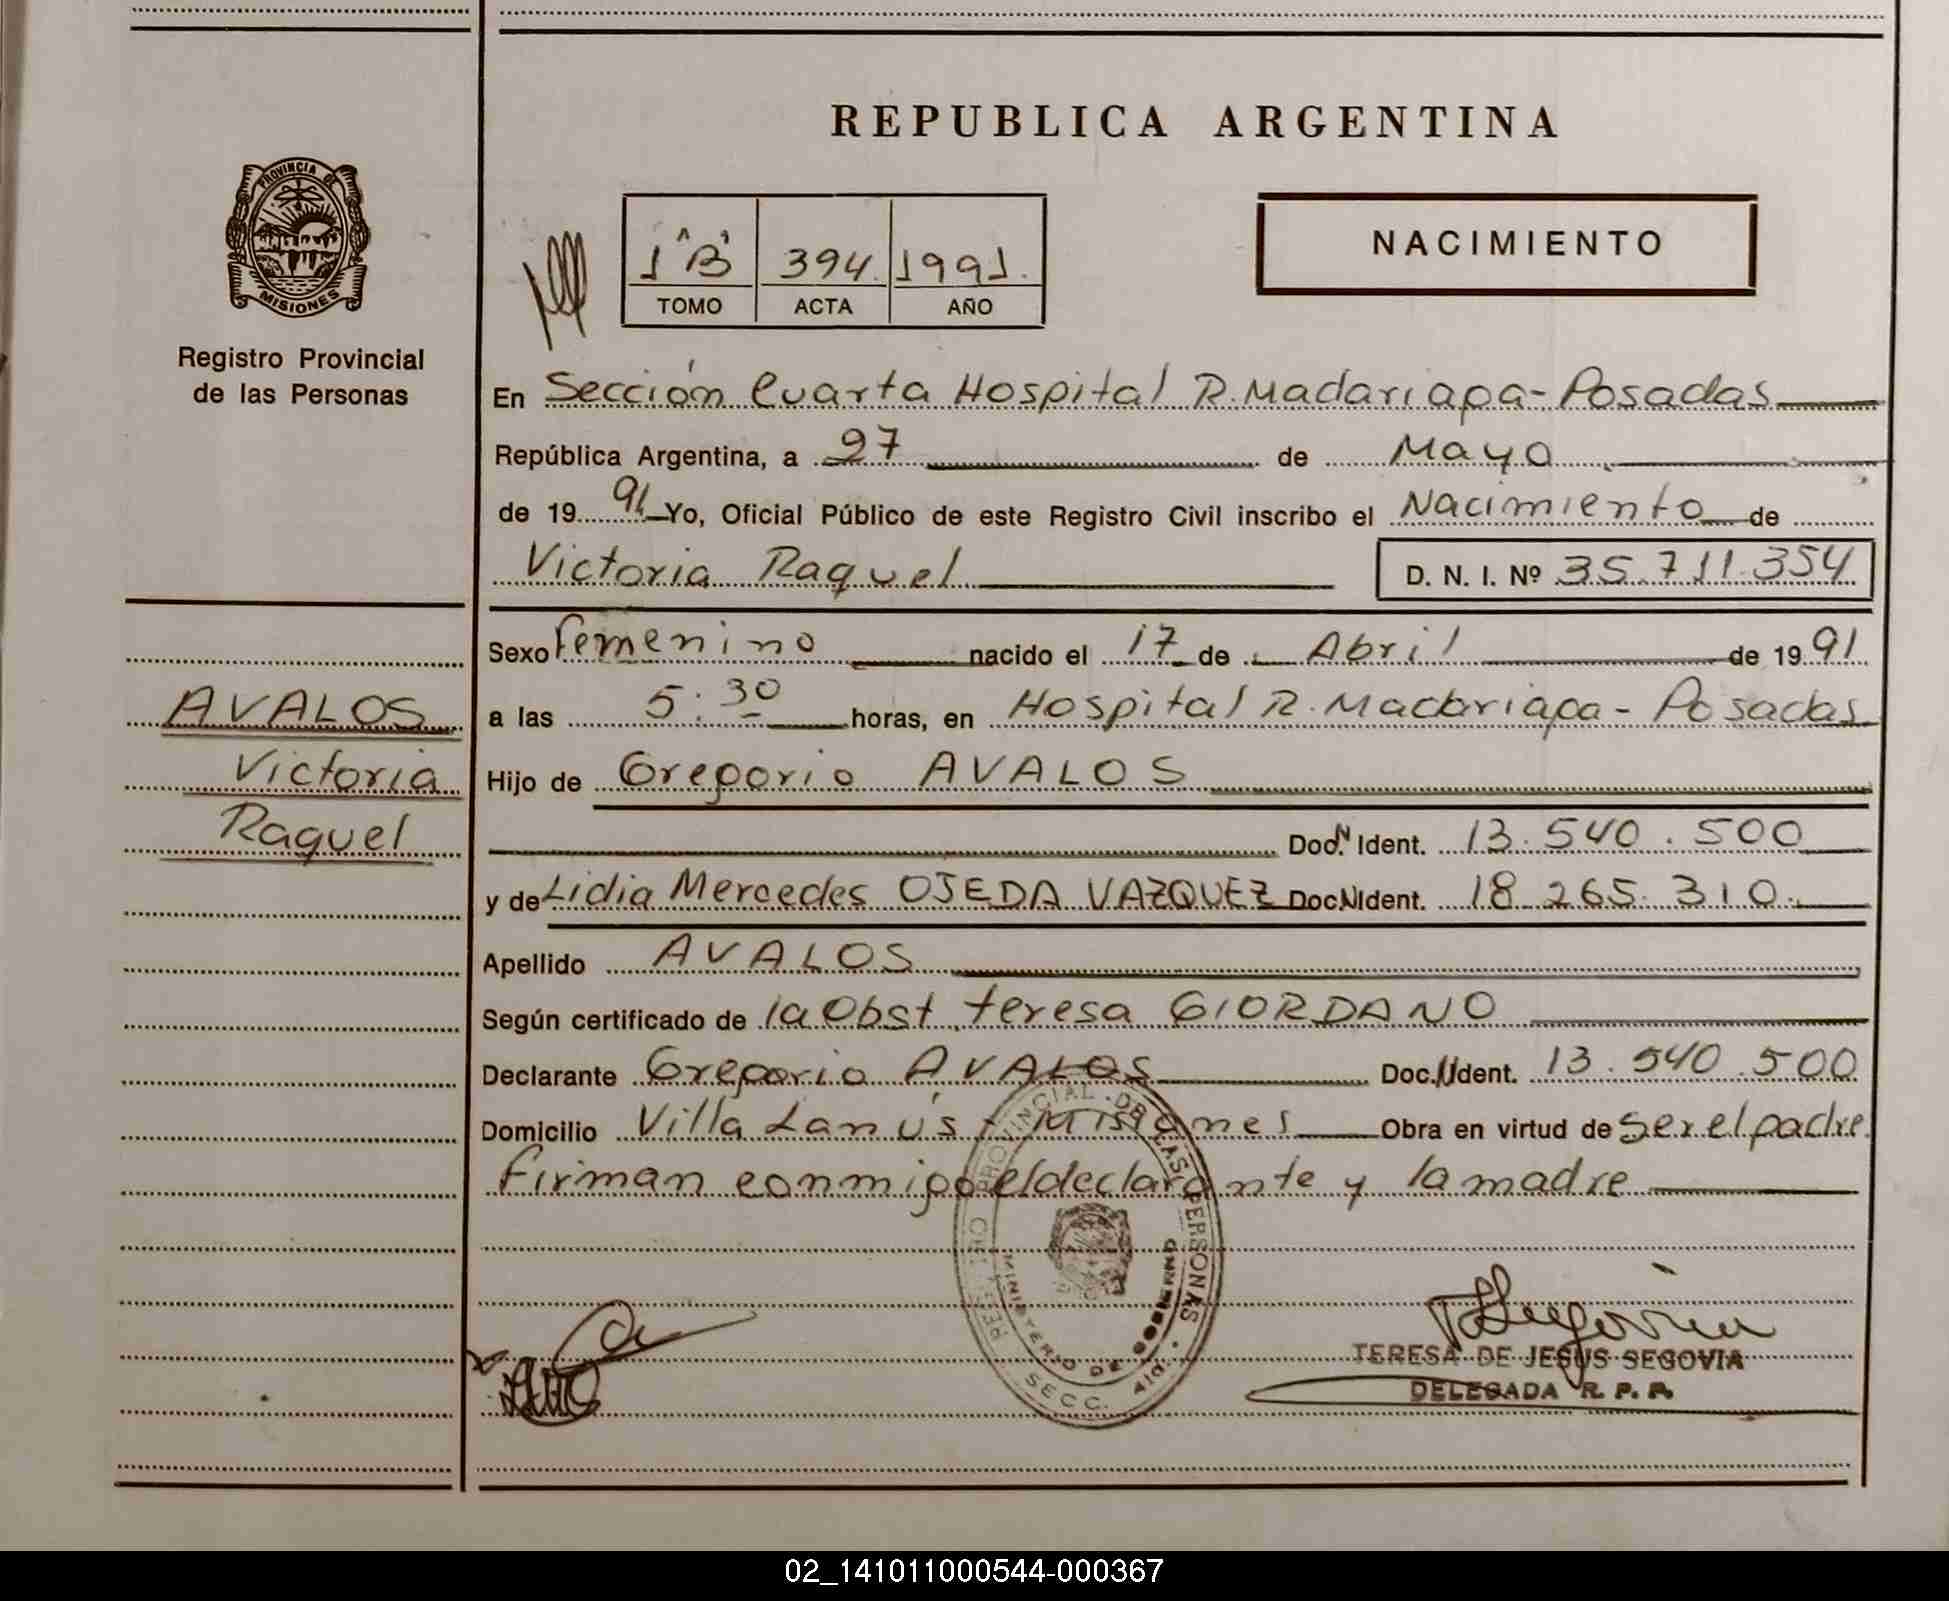 REPUBLICA ARGENTINA
PROVINCIA DE
MISIONES
Registro Provincial
de las Personas
1 "B" 394. 1991.
TOMO ACTA AÑO
NACIMIENTO
En Sección Cuarta Hospital R. Madariaga - Posadas
República Argentina, a 27 de Mayo
de 19 91 Yo, Oficial Público de este Registro Civil inscribo el Nacimiento de
Victoria Raquel D. N. I. Nº 35.711.354
Sexo Femenino nacido el 17 de Abril de 19 91
AVALOS
a las 5:30 horas, en Hospital R. Madariaga - Posadas
Victoria
Hijo de Gregorio AVALOS
Raquel
Doc. N Ident. 13.540.500
y de Lidia Mercedes OJEDA VAZQUEZ Doc. N Ident. 18.265.310.
Apellido AVALOS
Según certificado de la Obst. Teresa GIORDANO
Declarante Gregorio AVALOS Doc. N Ident. 13.540.500
Domicilio Villa Lanús - Misiones Obra en virtud de ser el padre
Firman conmigo el declarante y la madre
REGISTRO PROVINCIAL DE LAS PERSONAS
MINISTERIO DE GOBIERNO
SECC. 4ta.
TERESA DE JESUS SEGOVIA
DELEGADA R. P. P.
02_141011000544-000367